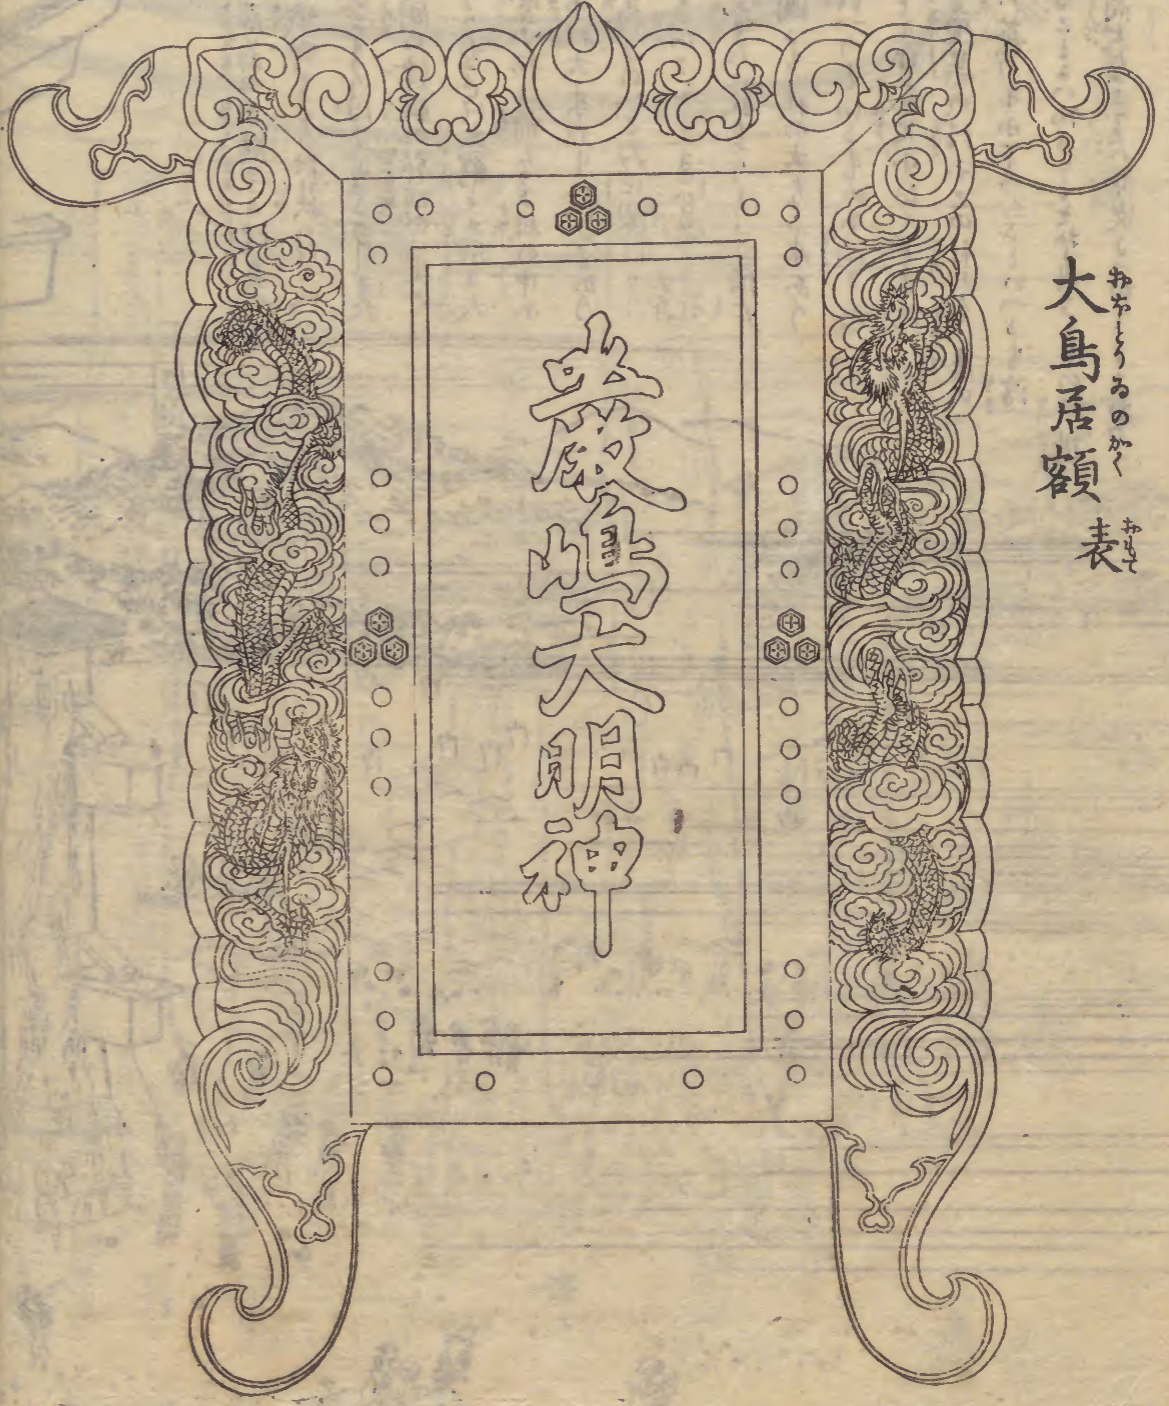 大鳥居額 表
おほとりゐのがく おもて
嚴嶋大明神